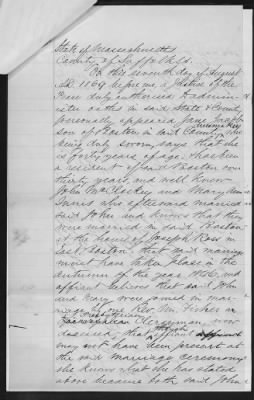 State of Massachusetts
County of Suffolk SS.
On this seventh day of August
A.D. 1869, before me a Justice of the
Peace duly authorized to administer
oaths in said State & County
personally appeared Jane
son of Boston in said County, who
being duly sworn, says that she
is forty years of age. That
a resident of said Boston
thirty years and well knew
John McCloskey and Mary Ann
who afterward married
said John and knows that they
were married in said Boston
at the house of Joseph Ross in
East Boston that said marriage
must have taken place in the
Autumn of the year 1846, and
affiant believes that said John
and Mary were joined in marriage
by one Rev. Mr. Fisher an
Clergyman, now
deceased; that though affiant
may not have been present at
the said marriage ceremony
she knows what she has stated
above because both said John